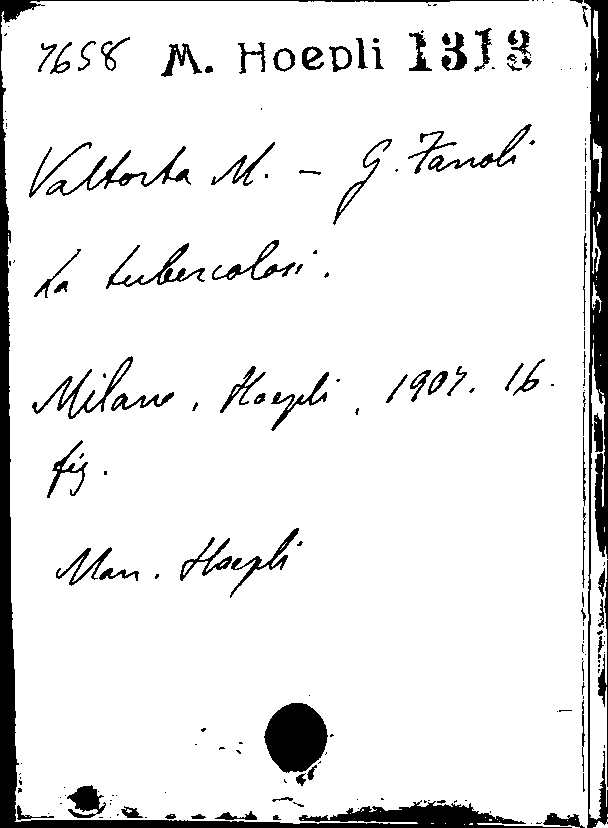 7658 M. Hoepli 1313
Valtorta M. - G. Fanoli
La tubercolosi.
Milano, Hoepli, 1907. 16.
fig.
Man. Hoepli